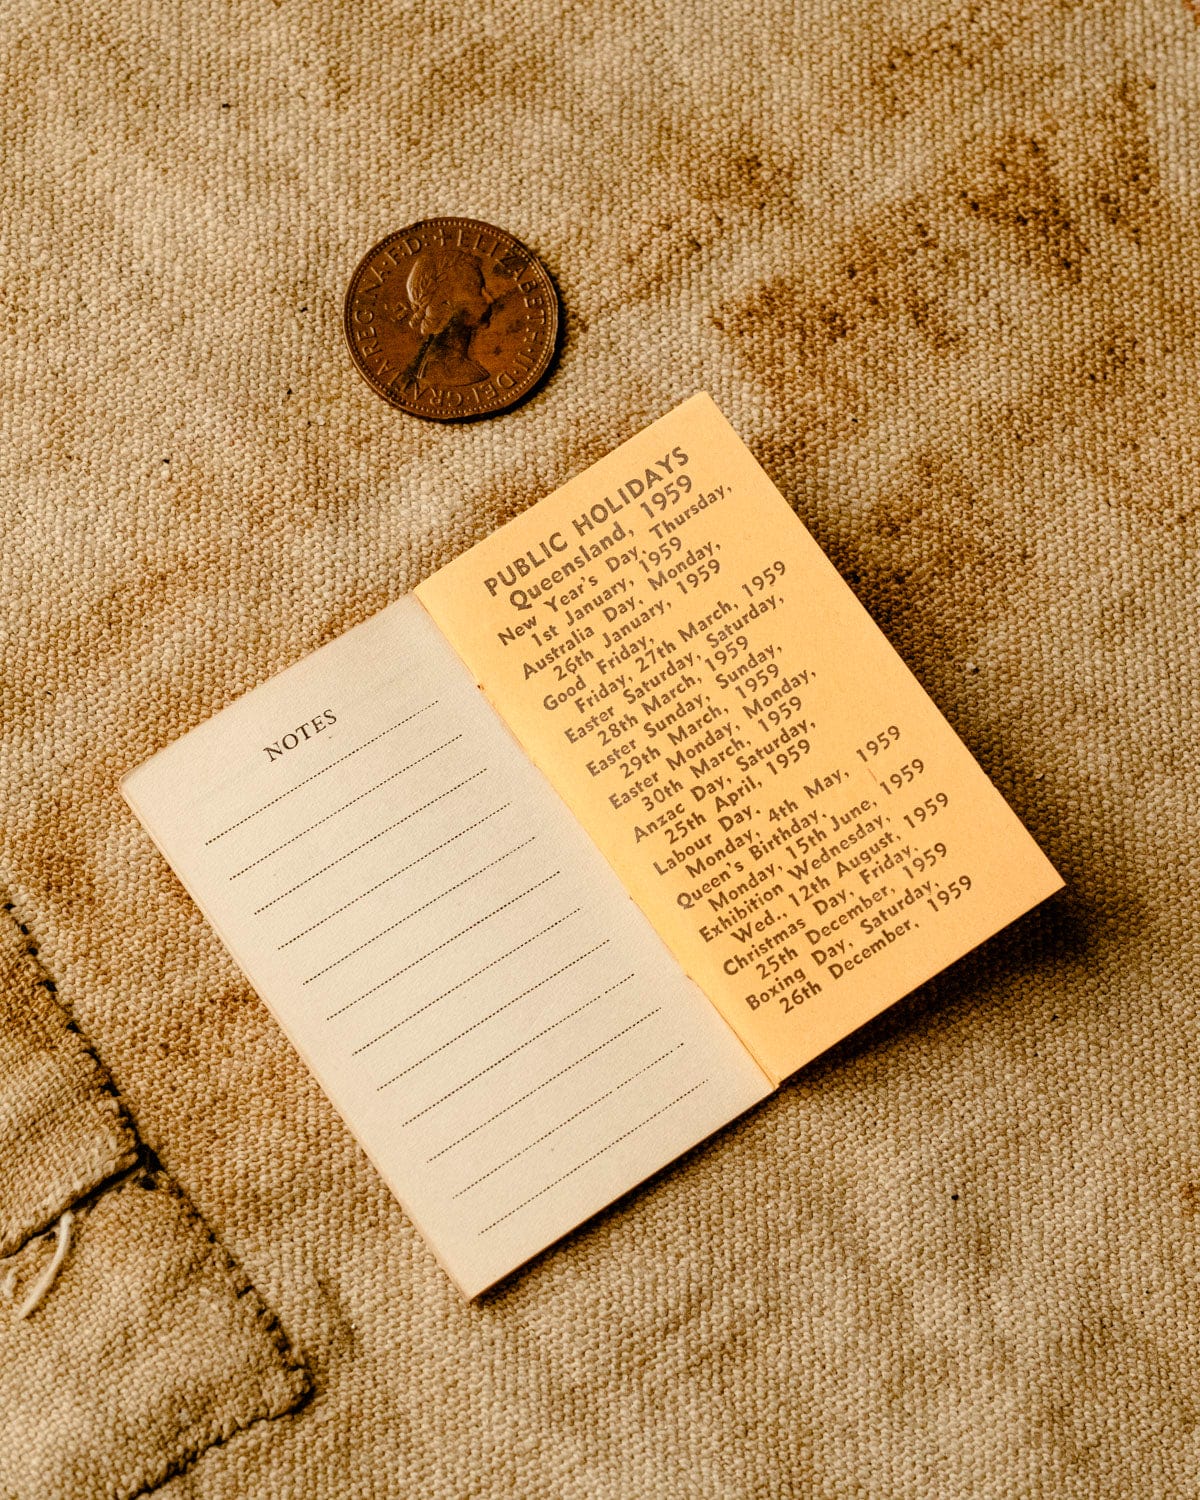 + ELIZABETH·II·DEI·GRATIA·REGINA·F:D:
NOTES
PUBLIC HOLIDAYS
Queensland, 1959
New Year's Day, Thursday,
1st January, 1959
Australia Day, Monday,
26th January, 1959
Good Friday,
Friday, 27th March, 1959
Easter Saturday, Saturday,
28th March, 1959
Easter Sunday, Sunday,
29th March, 1959
Easter Monday, Monday,
30th March, 1959
Anzac Day, Saturday,
25th April, 1959
Labour Day,
Monday, 4th May, 1959
Queen's Birthday,
Monday, 15th June, 1959
Exhibition Wednesday,
Wed., 12th August, 1959
Christmas Day, Friday,
25th December, 1959
Boxing Day, Saturday,
26th December, 1959